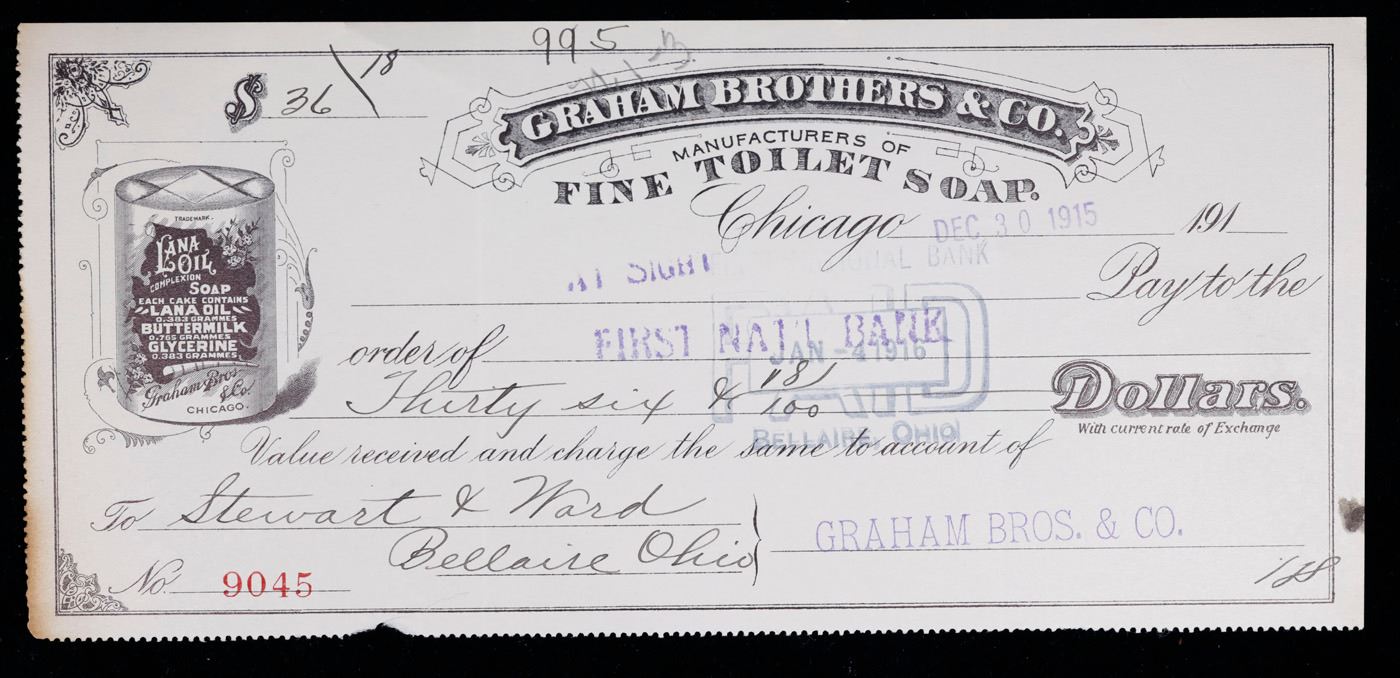 995
$ 36 18
GRAHAM BROTHERS & CO.
MANUFACTURERS OF
FINE TOILET SOAP.
Chicago DEC 30 1915 191
AT SIGHT
NATIONAL BANK
Pay to the
order of FIRST NAT'L BANK
PAID
JAN -4 1916
BELLAIRE, OHIO
Thirty six & 18/100 Dollars.
With current rate of Exchange
Value received and charge the same to account of
To Stewart & Ward
Bellaire Ohio
GRAHAM BROS. & CO.
No. 9045
TRADEMARK.
LANA
OIL
COMPLEXION
SOAP
EACH CAKE CONTAINS
LANA OIL
0.383 GRAMMES
BUTTERMILK
0.765 GRAMMES
GLYCERINE
0.383 GRAMMES
Graham Bros
& Co.
CHICAGO.